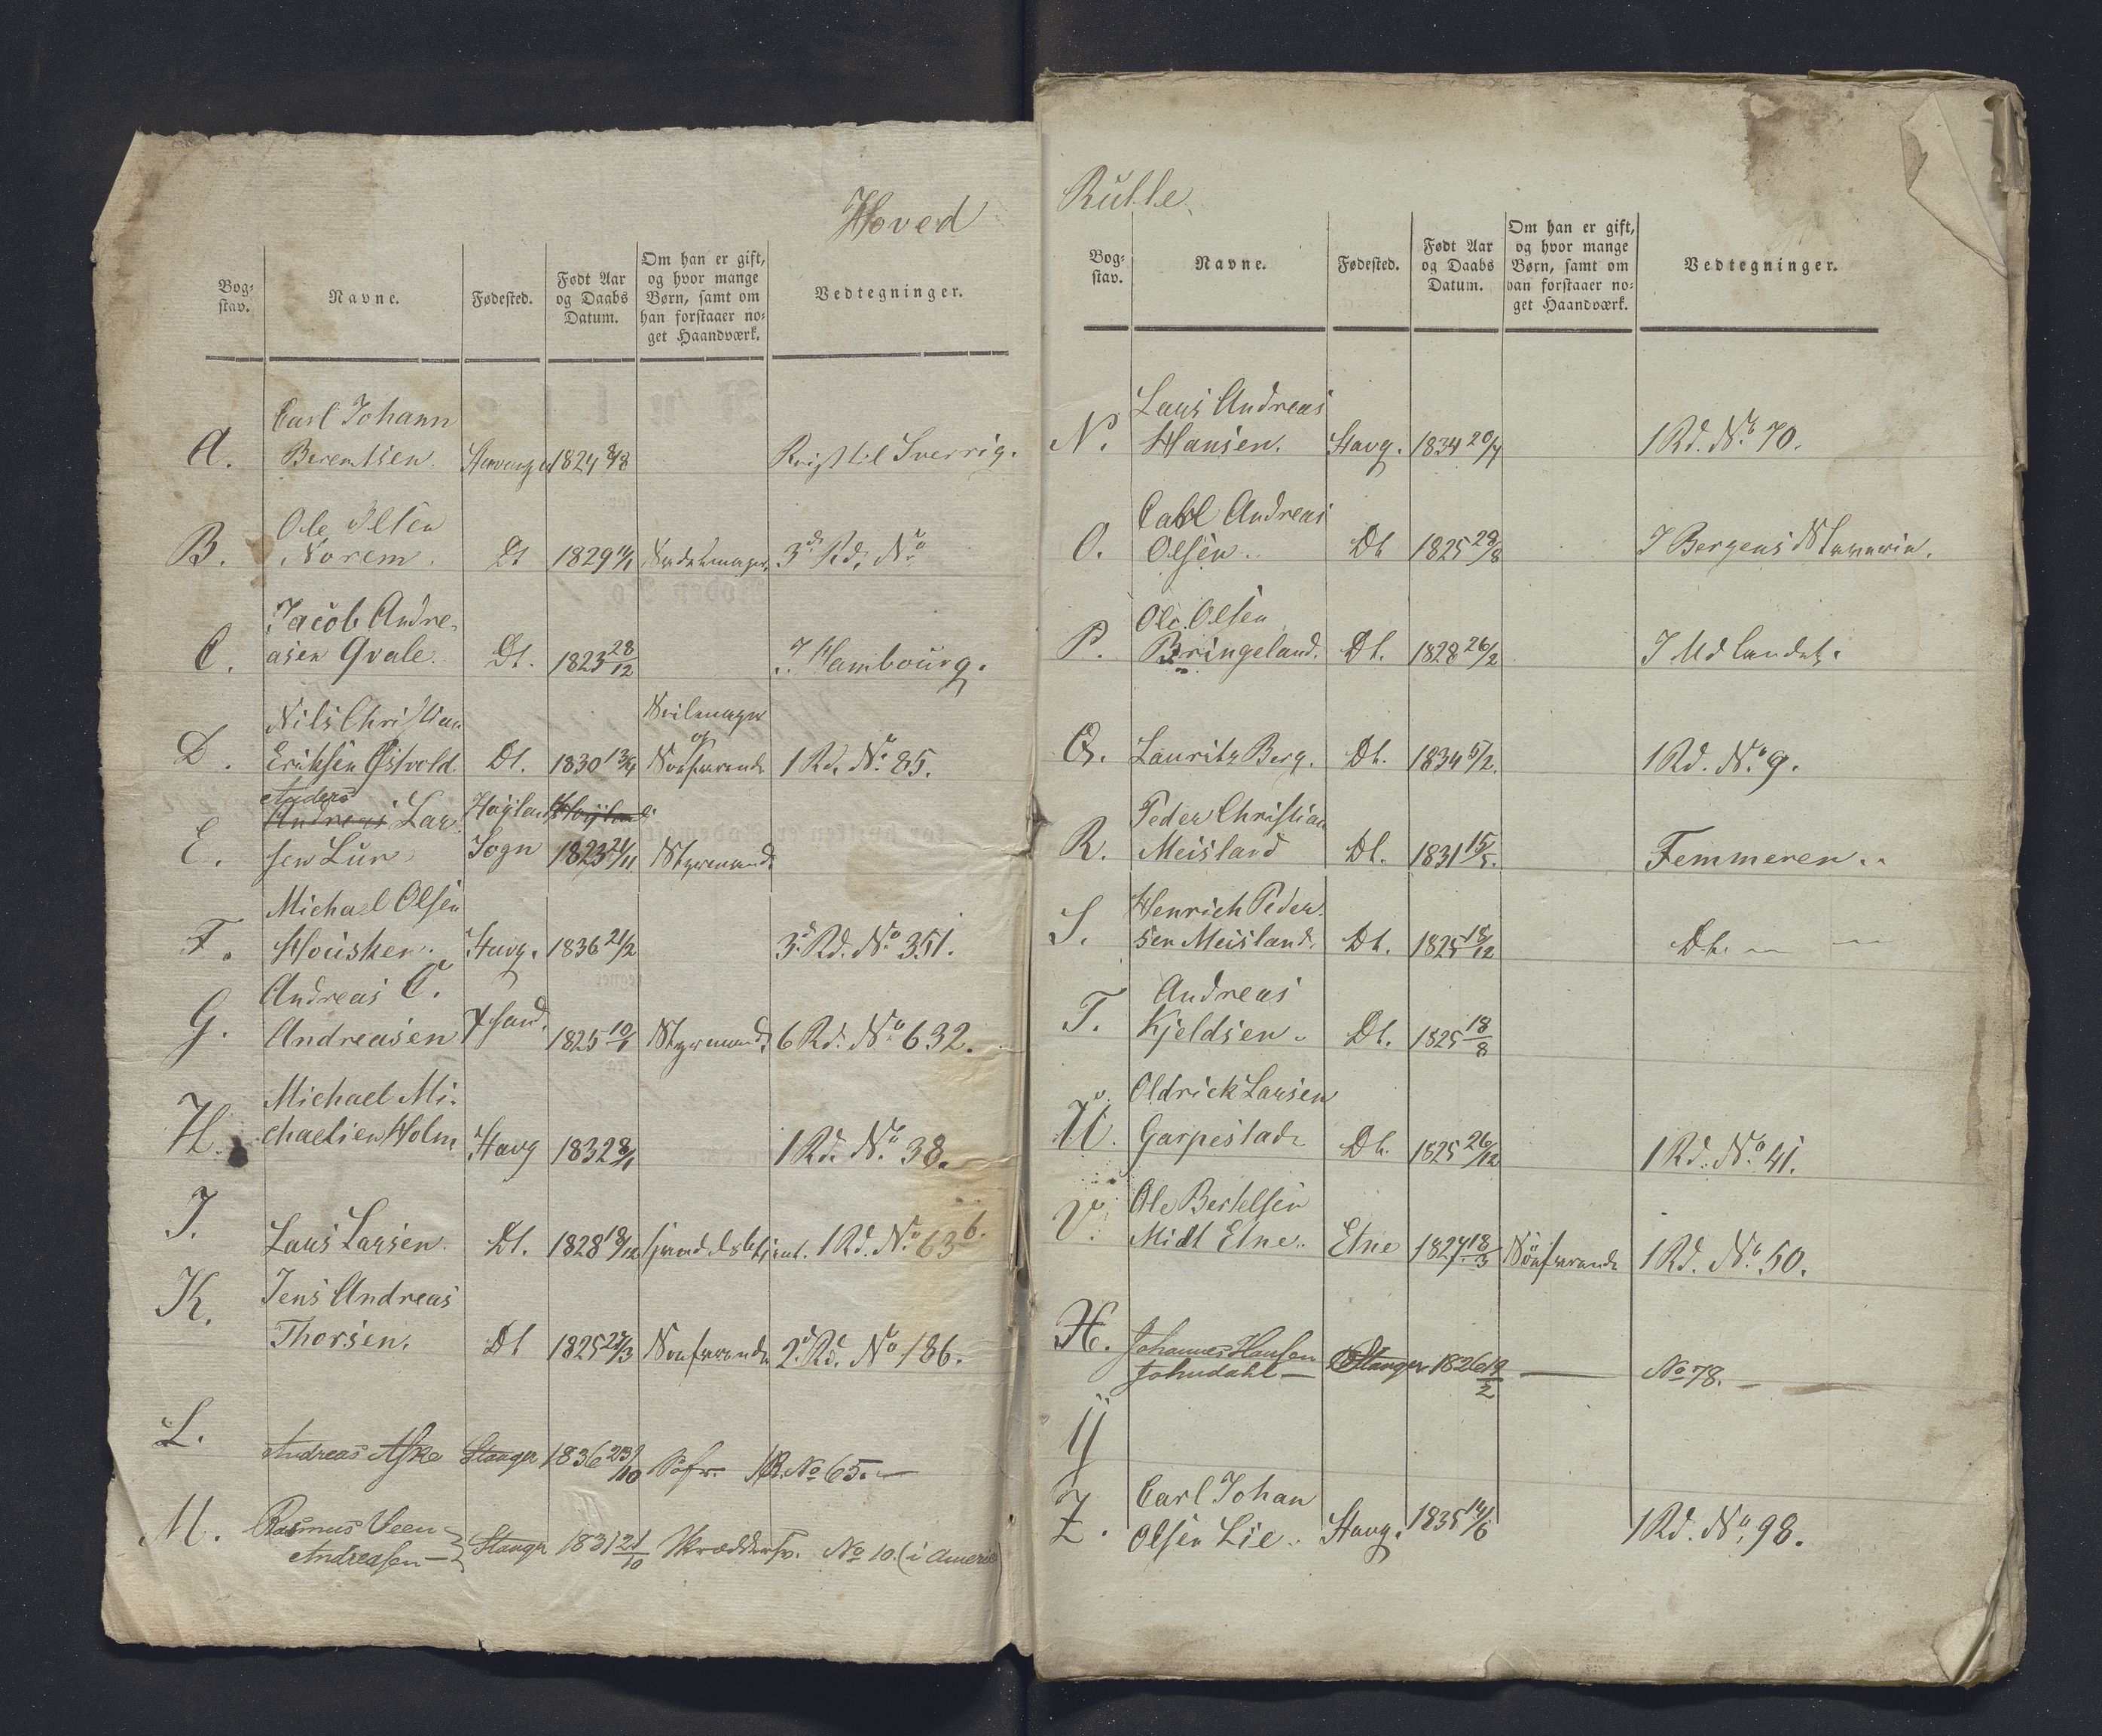 Hoved
Bog-
stav.
Navne.
Fødested.
Født Aar
og Daabs
Datum.
Om han er gift,
og hvor mange
Børn, samt om
han forstaaer no-
get Haandværk.
Vedtegninger.
Carl Johann
A. Berentsen. Stavanger 1824 8/8 Reist til Sverrig.
Ole Olsen
B. Norem. Dt 1829 3de Rd. No
Jacob Andre-
C. asen Qvale. Dt. 1823 28/12 I Hambourg.
Nils Christian Seilmager
og
D. Eriksen Østvold. Dt. 1830 13/4 Søefarende 1 Rd. No. 85.
Anders
Andreas Lar- Høyland Høyland
E. sen Lura Sogn 1823 21/11 Styrmand.
Michael Olsen
F. Housken. Stavg. 1836 21/2 3d. Rd. No 351.
Andreas C.
G. Andreasen 1825 10/1 Styrmand. 6 Rd. No 632.
Michael Mi-
H. chaelsen Holm Stavg 1832 8/1 1 Rd. No. 38.
I.
Lars Larsen. Dt. 1828 18/12 1 Rd. No. 636.
K. Jens Andreas
Thorsen. Dt 1825 27/3 Søefarende 2d. Rd. No 186.
L.
Andreas Aske Stavger 1836 23/10 Søfr. 1 R. No 65.
M. Rasmus Veen
Andreasen Stavger 1831 21/10 Skrædder No 10. (i Ameri
Rulle
Bog-
stav.
Navne.
Fødested.
Født Aar
og Daabs
Datum.
Om han er gift,
og hvor mange
Børn, samt om
han forstaaer no-
get Haandværk.
Vedtegninger.
Lars Andreas
N. Hansen. Stavg. 1834 20/4 1 Rd. No. 70.
Carl Andreas
O. Olsen. Dt 1825 28/8 I Bergens Slaveri.
Ole Olsen
P. Bringeland. Dt. 1828 26/2 I Udlandet.
Q. Lauritz Berg. Dt. 1834 5/2. 1 Rd. No. 9.
Peder Christian
R. Meisland Dt. 1831 15/5. Femmeren.
Henrich Peder-
S. sen Meisland. Dt. 1825 18/12 Dt.
Andreas
T. Kjeldsen. Dt. 1825 18/8
Oldrick Larsen
U. Garpestad Dt. 1825 26/12 1 Rd. No. 41.
Ole Bertelsen
V. Midt Etne. Etne 1827 18/3 Søefarende 1 Rd. No. 50.
X. Johannes Hansen
Johndahl Stavanger 1826 19/2 No 78.
Y
Carl Johan
Z. Olsen Lie. Stavg. 1835 14/6 1 Rd. No. 98.